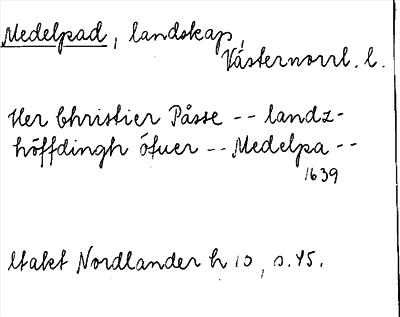 Medelpad, landskap,
Västernorrl. l.
Her Christier Påsse -- landz-
höffdingh öfuer -- Medelpa --
1639
ltakt Nordlander h 10, s. 45.